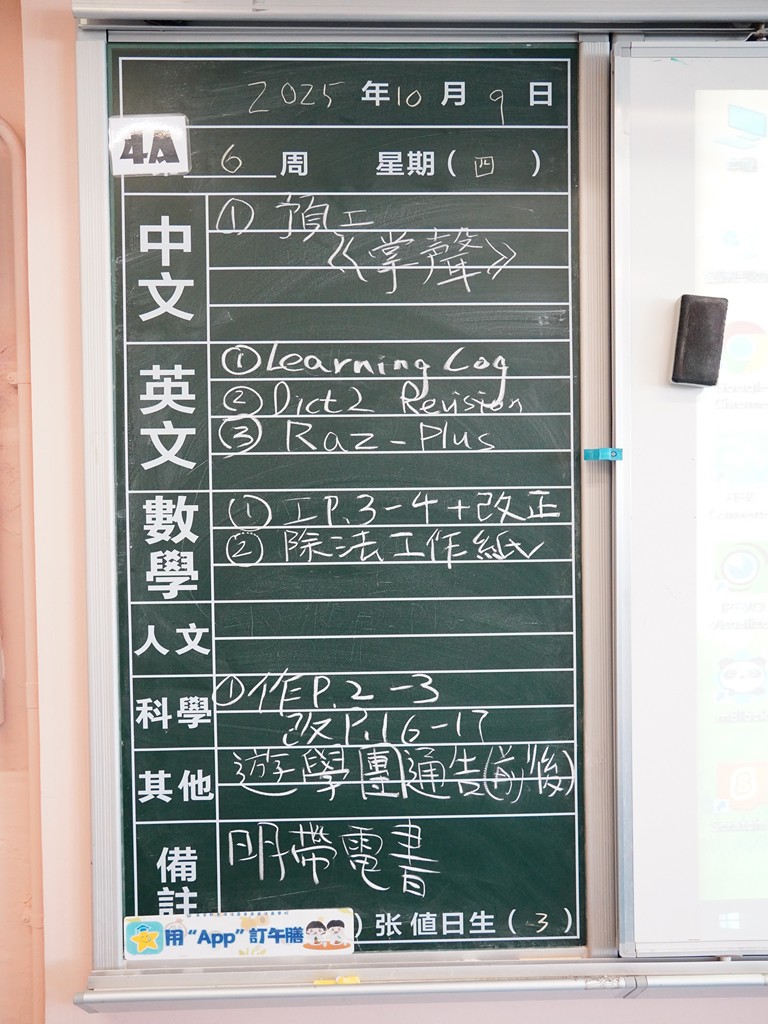 2025 年 10 月 9 日
4A
6 周 星期 ( 四 )
中文
① 預工
《掌聲》
英文
① Learning Log
② Dict 2 Revision
③ Raz-Plus
數學
① 工P.3-4+改正
② 除法工作紙
人文
科學
①作P.2-3
改P.16-17
其他
遊學團通告(前後)
備註
明帶電書
用“App”訂午膳
) 张 值日生 ( 3 )